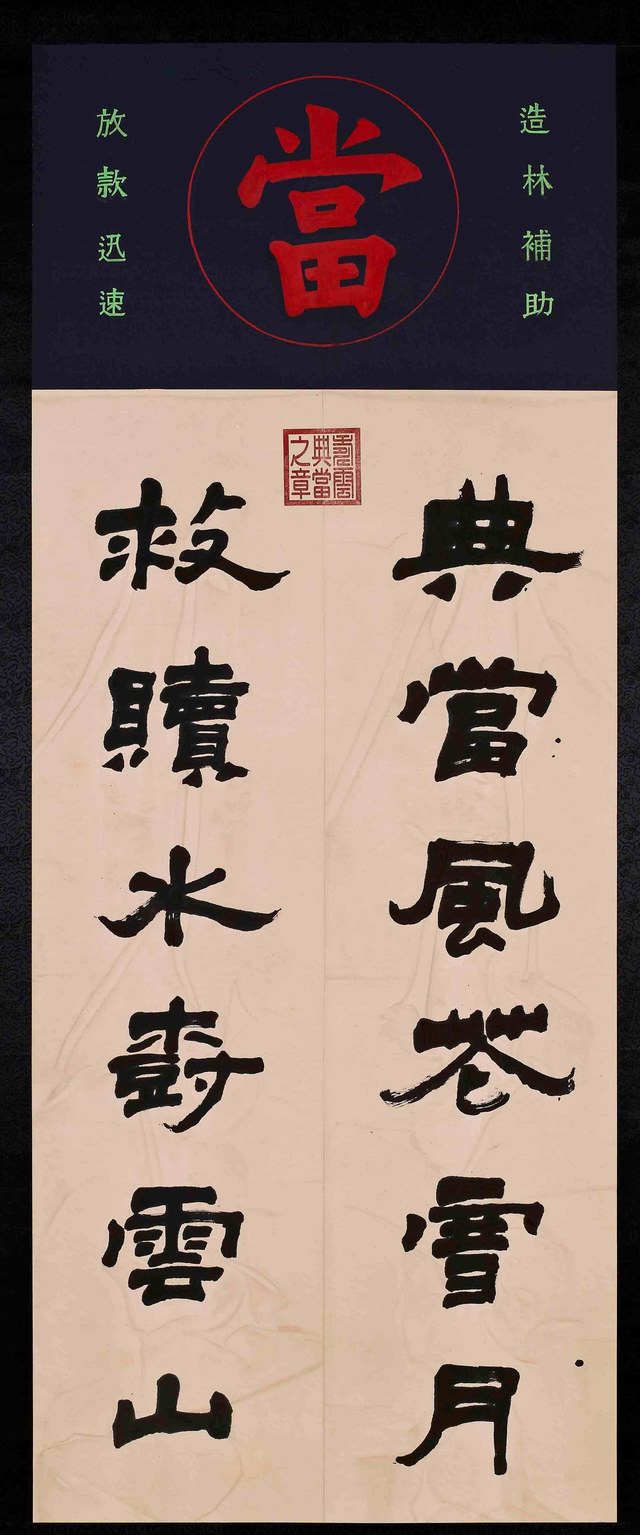 造林補助
當
放款迅速
典當
之章
典當風花雪月
救贖水樹雲山